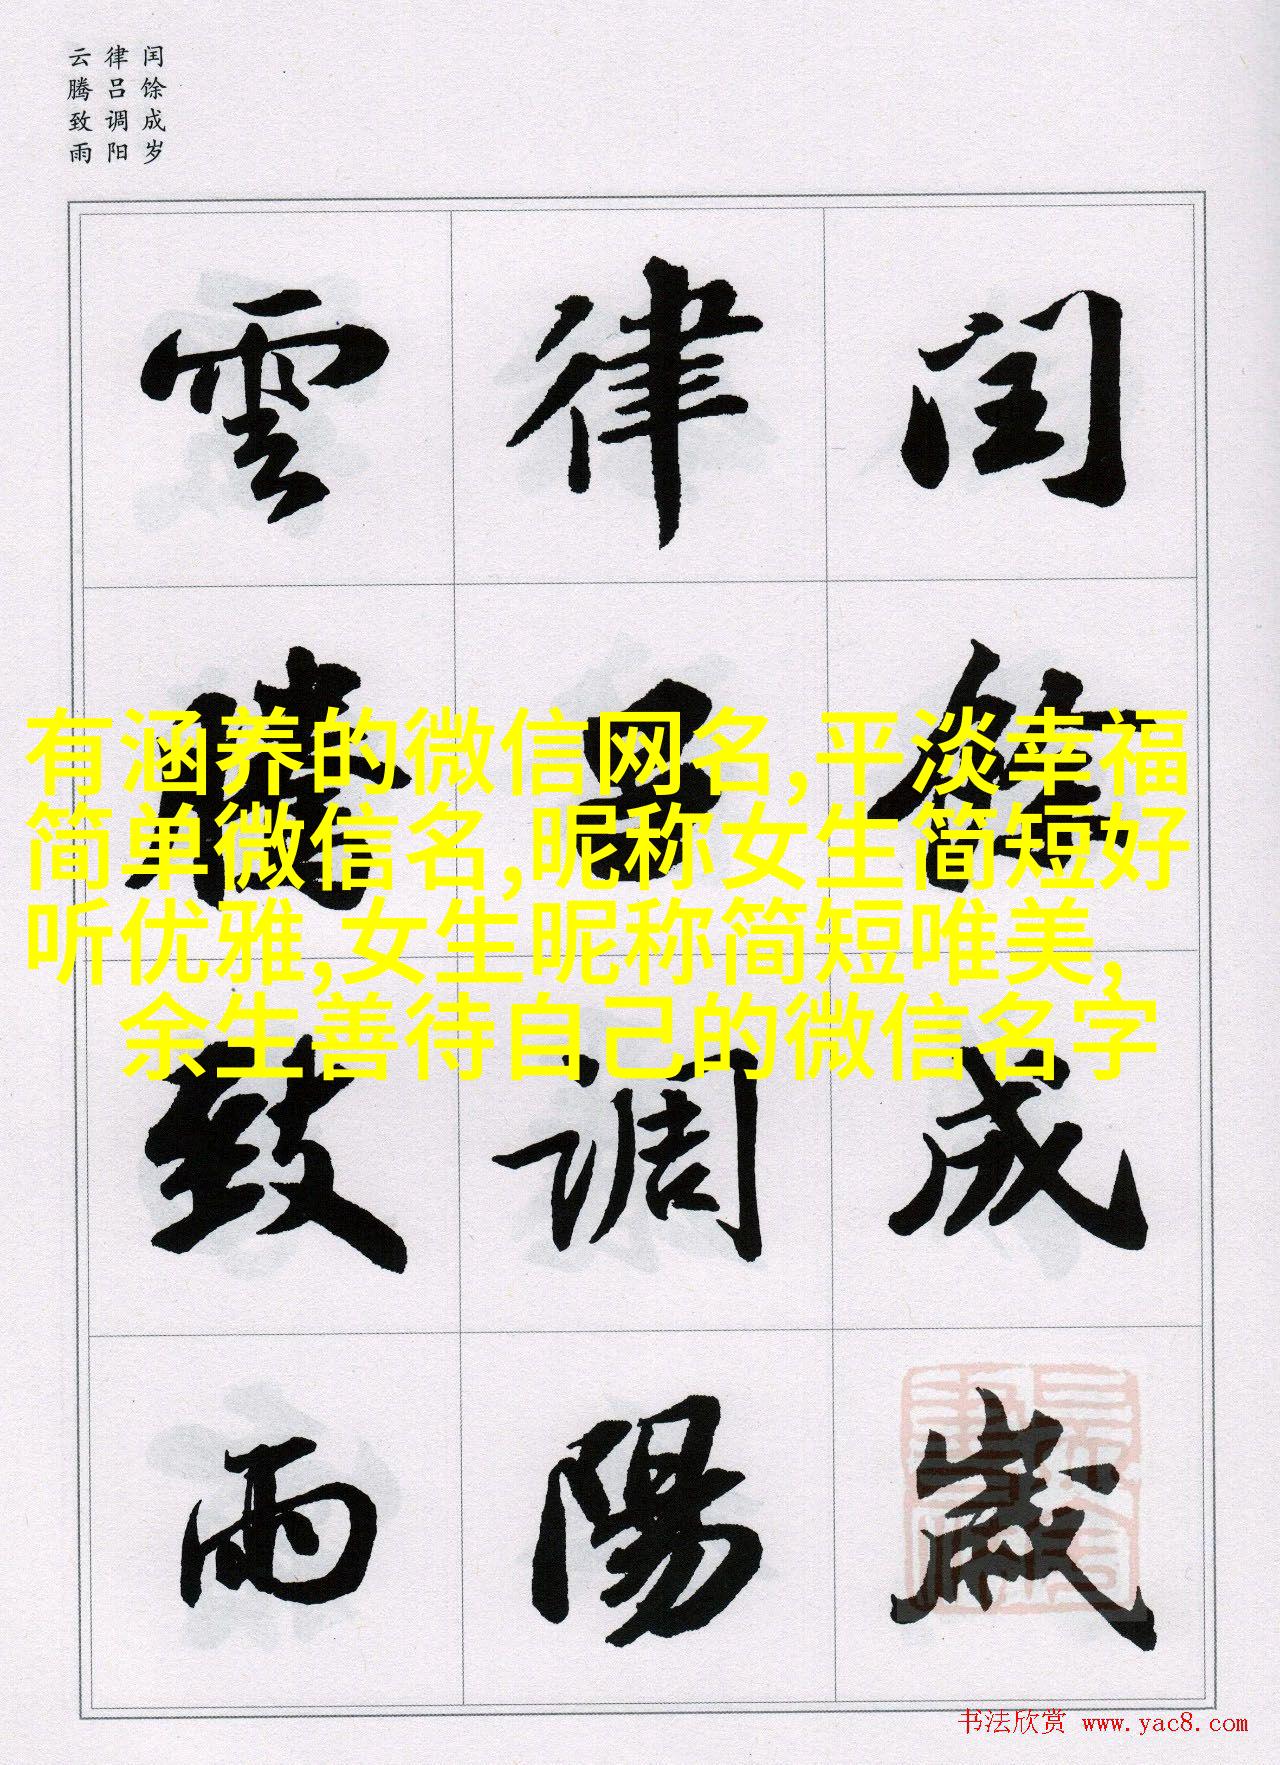 闰馀成岁
律吕调阳
云腾致雨
閏餘成歲
律吕調陽
雲騰致雨
有涵养的微信网名,平淡幸福
简单微信名,昵称女生简短好
听优雅,女生昵称简短唯美,
余生善待自己的微信名字
书法欣赏 www.yac8.com